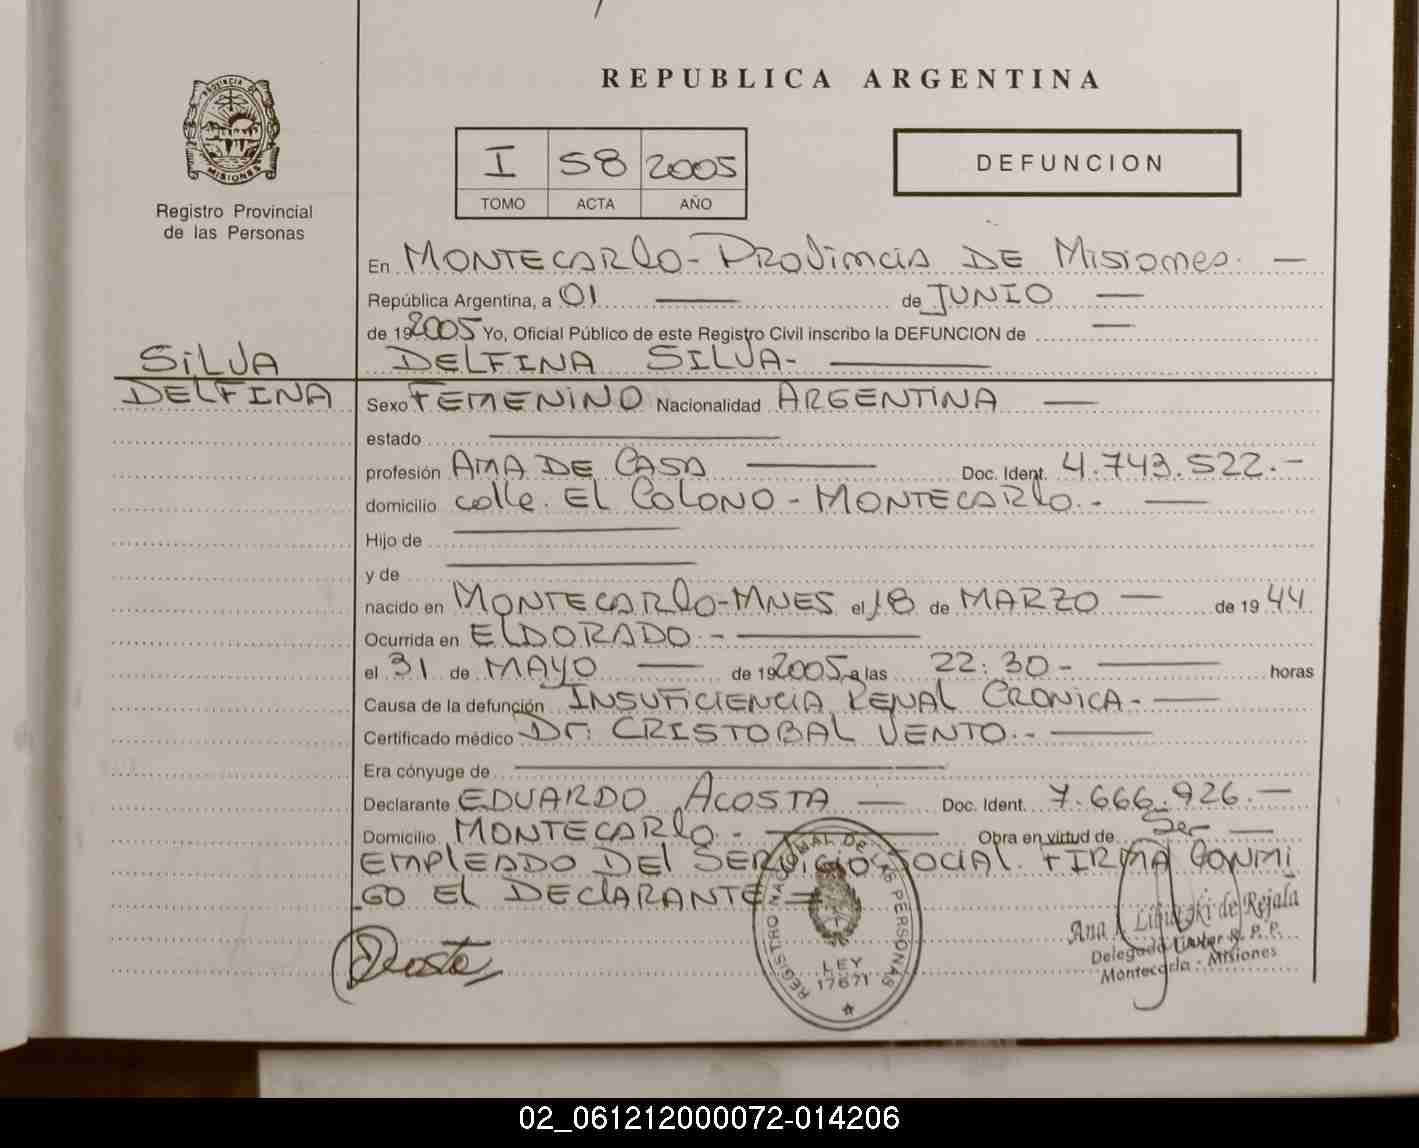 REPUBLICA ARGENTINA
PROVINCIA DE
MISIONES
Registro Provincial
de las Personas
I 58 2005
TOMO ACTA AÑO
DEFUNCION
En MONTECARLO - PROVINCIA DE MISIONES. —
República Argentina, a 01 — de JUNIO —
de 192005 Yo, Oficial Público de este Registro Civil inscribo la DEFUNCION de —
SILVA
DELFINA
DELFINA SILVA- —
Sexo FEMENINO Nacionalidad ARGENTINA —
estado —
profesión AMA DE CASA — Doc. Ident. 4.743.522.-
domicilio calle. EL COLONO - MONTECARLO.- —
Hijo de —
y de —
nacido en MONTECARLO-MNES el 18 de MARZO — de 19 44
Ocurrida en ELDORADO.- —
el 31 de MAYO — de 192005 a las 22:30- — horas
Causa de la defunción INSUFICIENCIA RENAL CRONICA.- —
Certificado médico Dr. CRISTOBAL VENTO.- —
Era cónyuge de —
Declarante EDUARDO ACOSTA — Doc. Ident. 7.666.926.—
Domicilio MONTECARLO.- — Obra en virtud de Ser —
EMPLEADO DEL SERVICIO SOCIAL. FIRMA CONMI
GO EL DECLARANTE =
Acosta
REGISTRO NACIONAL DE LAS PERSONAS
LEY
17671
Ana de Rejala
Delegada Titular R. P. P.
Montecarlo - Misiones
02_061212000072-014206